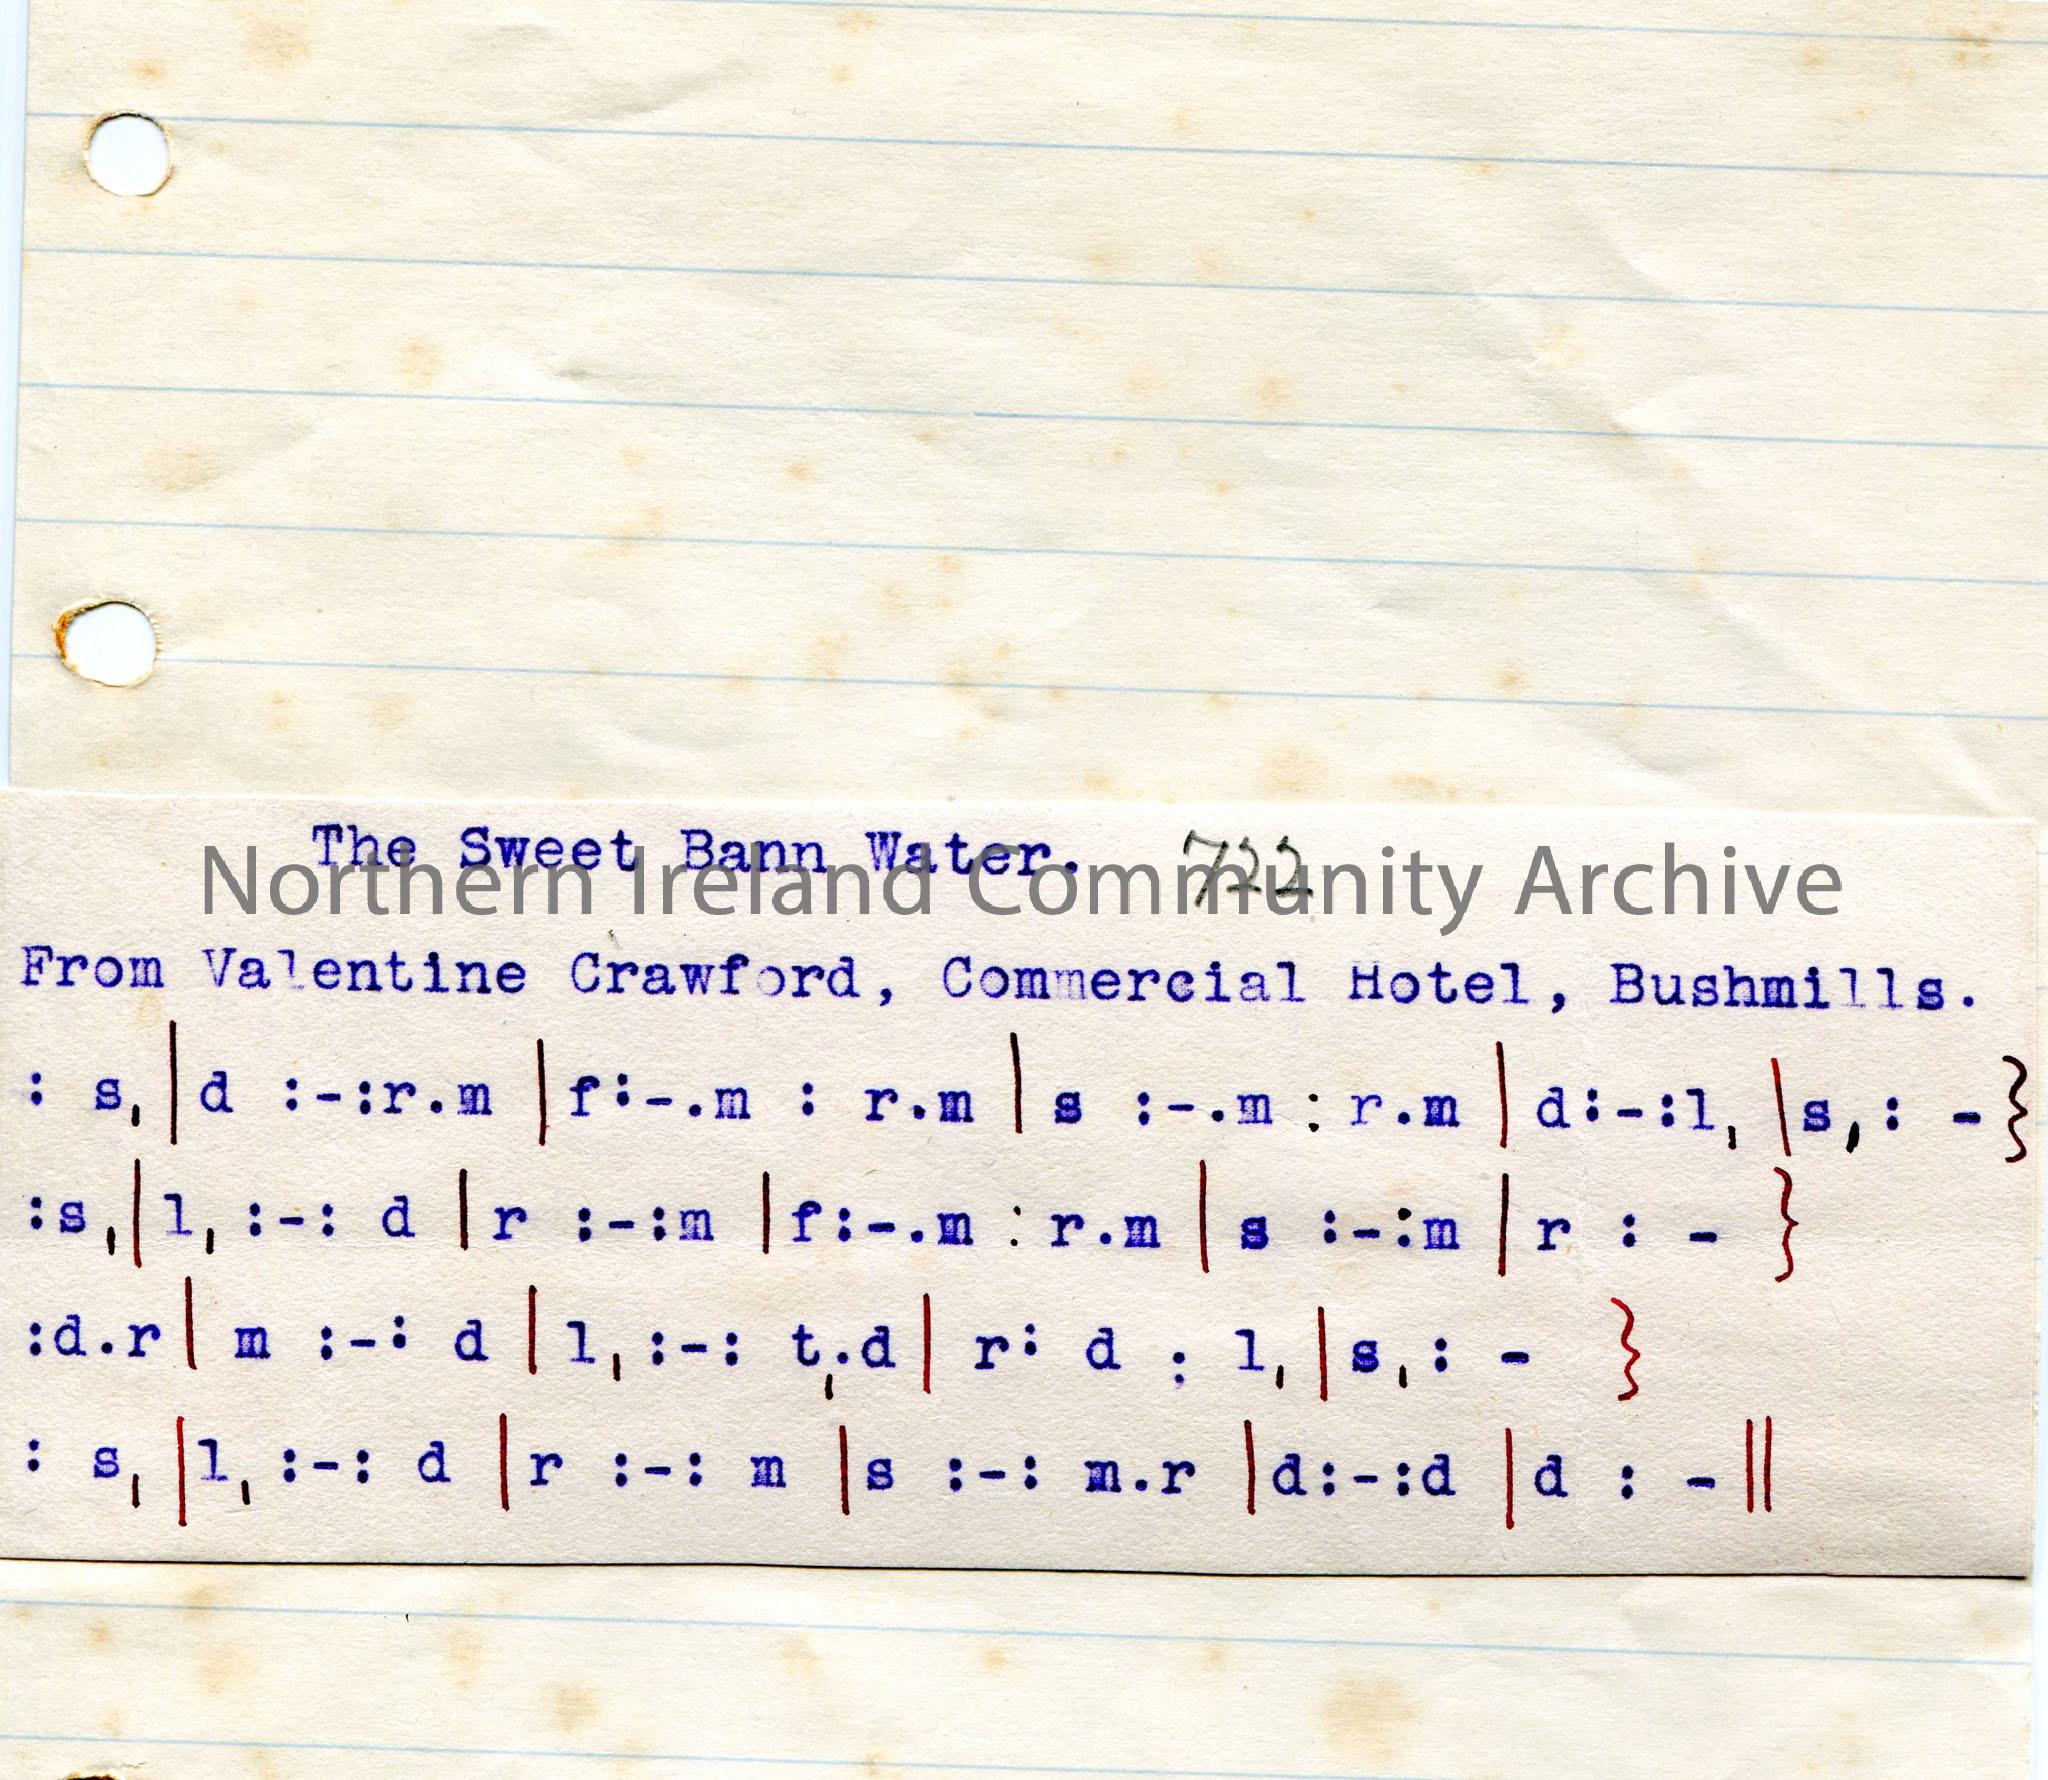 The Sweet Bann Water. 722
Northern Ireland Community Archive
From Valentine Crawford, Commercial Hotel, Bushmills.
: s,|d :-:r.m |f:-.m : r.m | s :-.m : r.m | d:-:l, |s,: -}
:s,|l, :-: d |r :-:m |f:-.m : r.m | s :-:m | r : - }
:d.r| m :-: d |l,:-: t,.d | r: d : l,|s,: - }
: s,|l, :-: d |r :-: m |s :-: m.r |d:-:d |d : -||